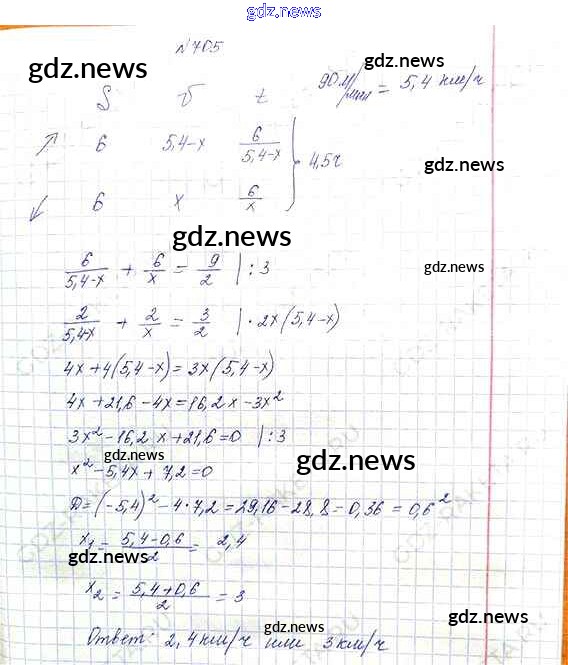 gdz.news
№705
gdz.news
90 м/мин = 5,4 км/ч
S v t
↗ 6 5,4-x 6/(5,4-x)
} 4,5ч
gdz.news
↙ 6 x 6/x
gdz.news
6/(5,4-x) + 6/x = 9/2 | :3
gdz.news
2/(5,4-x) + 2/x = 3/2 | · 2x(5,4-x)
4x+4(5,4-x)=3x(5,4-x)
4x+21,6-4x=16,2x-3x²
3x²-16,2x+21,6=0 | :3
gdz.news
gdz.news
x²-5,4x+7,2=0
D=(-5,4)²-4·7,2=29,16-28,8=0,36=0,6²
x₁=(5,4-0,6)/2=2,4
gdz.news
x₂=(5,4+0,6)/2=3
gdz.news
gdz.news
Ответ: 2,4 км/ч или 3 км/ч